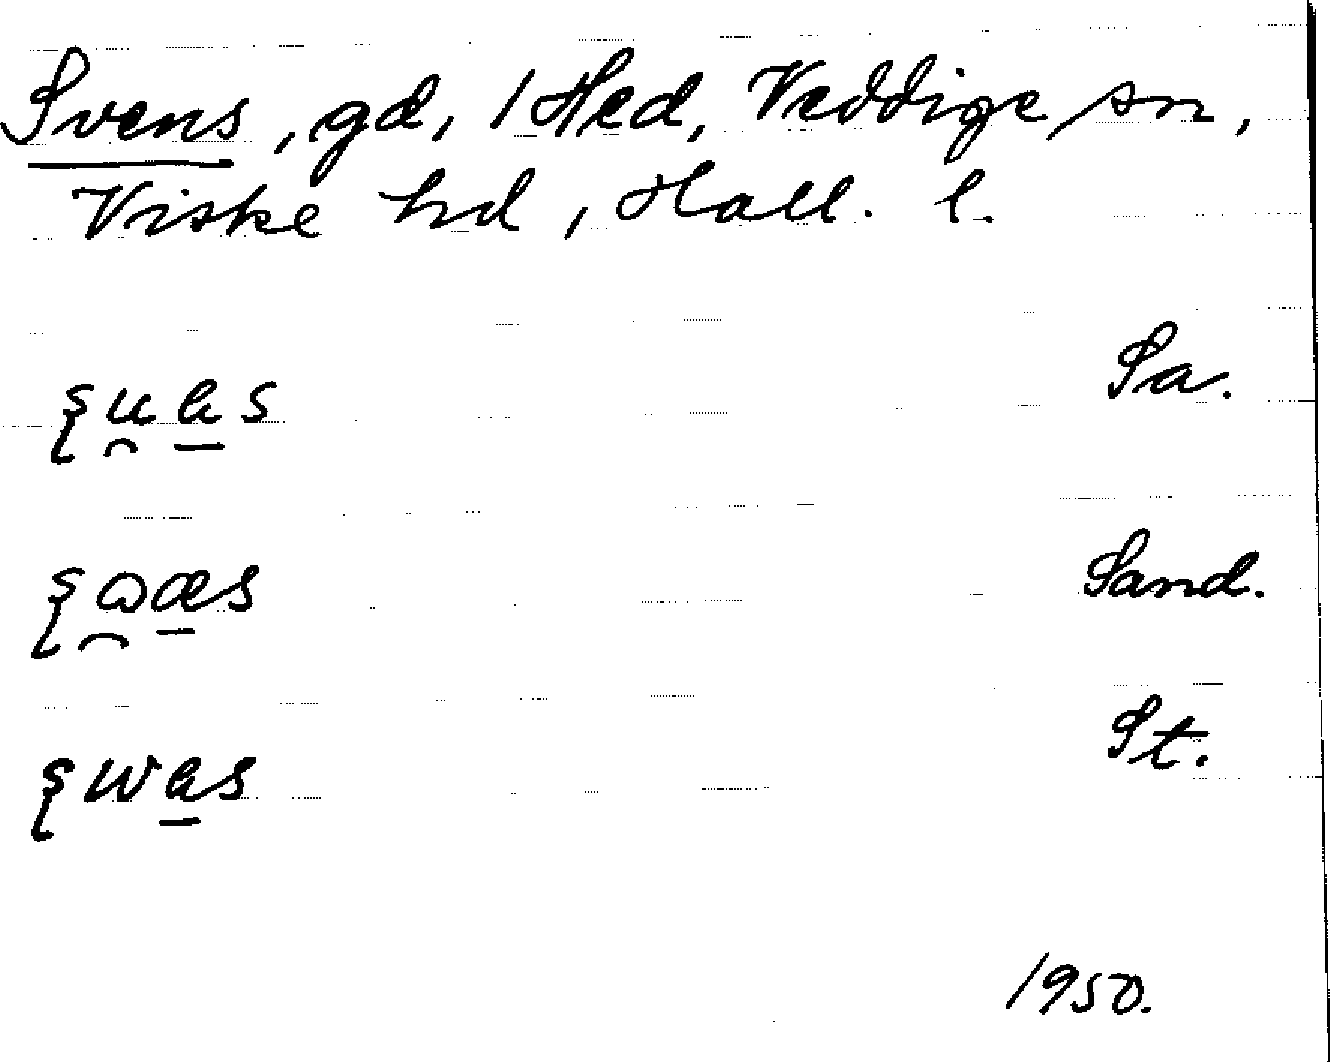 Svens, gd, 1 Hed, Veddige sn,
Viske hd, Hall. l.
Sa.
Sand.
St.
1950.